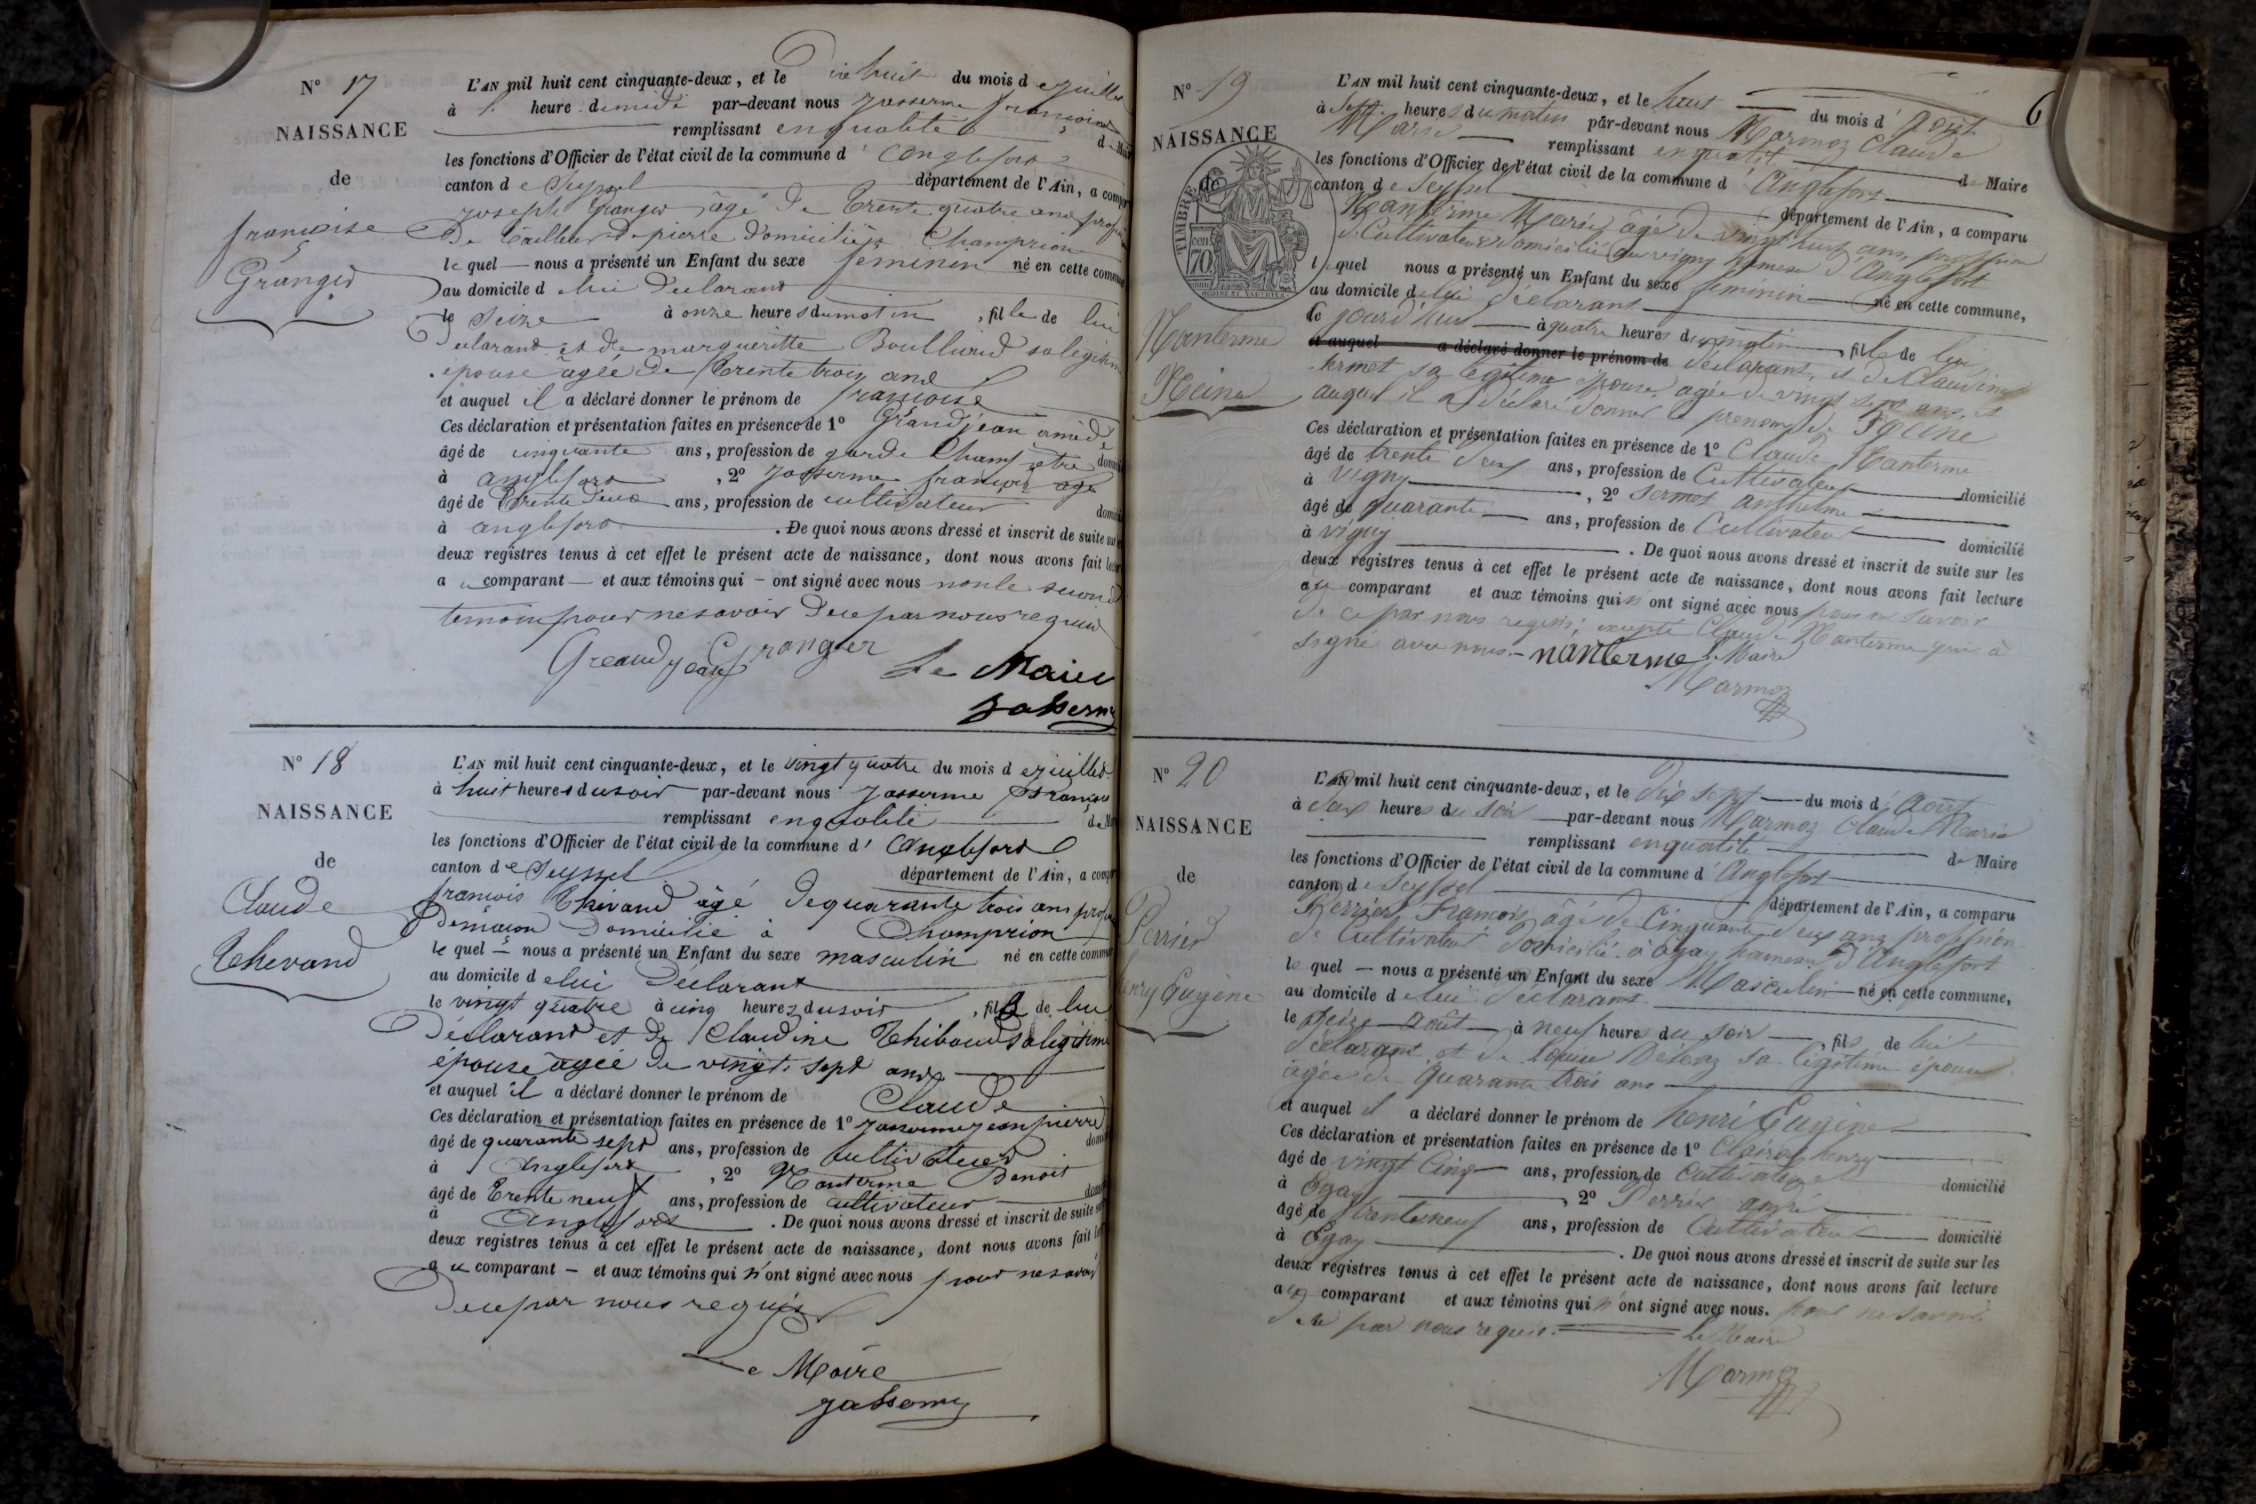 N° 17
NAISSANCE
de
françoise
Granger
L'AN mil huit cent cinquante-deux, et le Dix huit du mois de juillet
à 1 heure de midi par-devant nous Jasserme françois
remplissant en qualité de Mai
les fonctions d'Officier de l'état civil de la commune d' anglefort
canton de Seyssel département de l'Ain, a compa
joseph Granger âgé de trente quatre ans profe
De tailleur de pierre Domicilié à Champrion
le quel nous a présenté un Enfant du sexe feminin né en cette commune
au domicile de lui Declarant
le Seize à onze heures du matin, fille de lui
Declarant et de margueritte Boulliand sa légitime
épouse âgée de trente trois ans
et auquel il a déclaré donner le prénom de françoise
Ces déclaration et présentation faites en présence de 1° Grandjean amédé
âgé de cinquante ans, profession de garde champêtre domi
à anglefort, 2° Jasserme françois âgé
âgé de trente deux ans, profession de cultivateur domi
à anglefort. De quoi nous avons dressé et inscrit de suite sur
deux registres tenus à cet effet le présent acte de naissance, dont nous avons fait lec
au comparant et aux témoins qui ont signé avec nous non le second
temoin pour ne savoir De ce par nous requis
Grandjean Granger Le Maire
Jasserme
N° 18
NAISSANCE
de
Claude
Thevand
L'AN mil huit cent cinquante-deux, et le vingt quatre du mois de juillet
à huit heures du soir par-devant nous Jasserme François
remplissant en qualité de Ma
les fonctions d'Officier de l'état civil de la commune d' Anglefort
canton de Seyssel département de l'Ain, a comp
françois Thevand âgé de quarante trois ans profe
De maçon Domicilié à Champrion
le quel nous a présenté un Enfant du sexe masculin né en cette commun
au domicile de lui Déclarant
le vingt quatre à cinq heures du soir, fils de lui
Déclarant et de Claudine Thiboud sa légitime
épouse âgée de vingt sept ans
et auquel il a déclaré donner le prénom de Claude
Ces déclaration et présentation faites en présence de 1° Jasserme jean pierre
âgé de quarante sept ans, profession de cultivateur domi
à Anglefort, 2° Nanterme Benoit
âgé de trente neuf ans, profession de cultivateur domi
à Anglefort. De quoi nous avons dressé et inscrit de suite
deux registres tenus à cet effet le présent acte de naissance, dont nous avons fait
au comparant et aux témoins qui n'ont signé avec nous pour ne savoir
De ce par nous requis
Le Maire
Jasserme
6
N° 19
NAISSANCE
de
TIMBRE
70
Nanterme
Reine
L'AN mil huit cent cinquante-deux, et le huit du mois d' Août
à sept heures du matin par-devant nous Marmoz Claude
Marie remplissant en qualité de Maire
les fonctions d'Officier de l'état civil de la commune d' Anglefort
canton de Seyssel département de l'Ain, a comparu
Nanterme Marie âgé de vingt huit ans, profession
de Cultivateur domicilié à vigny hameau d'Anglefort
le quel nous a présenté un Enfant du sexe feminin né en cette commune,
au domicile de lui déclarant
le jourd'hui à quatre heures du matin, fille de lui
et auquel a déclaré donner le prénom de déclarant, et de Claudine
Sermet sa légitime épouse, agée de vingt sept ans, et
auquel il a déclaré donner le prénom de Reine
Ces déclaration et présentation faites en présence de 1° Claude Nanterme
âgé de trente deux ans, profession de Cultivateur domicilié
à Vigny, 2° Sermet anthelme
âgé de quarante ans, profession de Cultivateur domicilié
à Vigny. De quoi nous avons dressé et inscrit de suite sur les
deux registres tenus à cet effet le présent acte de naissance, dont nous avons fait lecture
au comparant et aux témoins qui n'ont signé avec nous pour ne savoir
de ce par nous requis; excepté Claude Nanterme qui a
signé avec nous. nanterme Le Maire
Marmoz
N° 20
NAISSANCE
de
Perrier
henry Eugène
L'AN mil huit cent cinquante-deux, et le Dix sept du mois d' Août
à deux heures du soir par-devant nous Marmoz Claude Marie
remplissant en qualité de Maire
les fonctions d'Officier de l'état civil de la commune d' Anglefort
canton de Seyssel département de l'Ain, a comparu
Perrier François âgé de Cinquante deux ans profession
de Cultivateur domicilié à Ogay hameau d'Anglefort
le quel nous a présenté un Enfant du sexe Masculin né en cette commune,
au domicile de lui déclarant
le seize Août à neuf heures du soir, fils de lui
déclarant et de Louise sa légitime épouse
âgée de quarante trois ans
et auquel il a déclaré donner le prénom de henri Eugène
Ces déclaration et présentation faites en présence de 1° Clairet henry
âgé de vingt Cinq ans, profession de Cultivateur domicilié
à Ogay, 2° Perrier andré
âgé de trente neuf ans, profession de Cultivateur domicilié
à Ogay. De quoi nous avons dressé et inscrit de suite sur les
deux registres tenus à cet effet le présent acte de naissance, dont nous avons fait lecture
aux comparant et aux témoins qui n'ont signé avec nous. pour ne savoir
de ce par nous requis. Le Maire
Marmoz